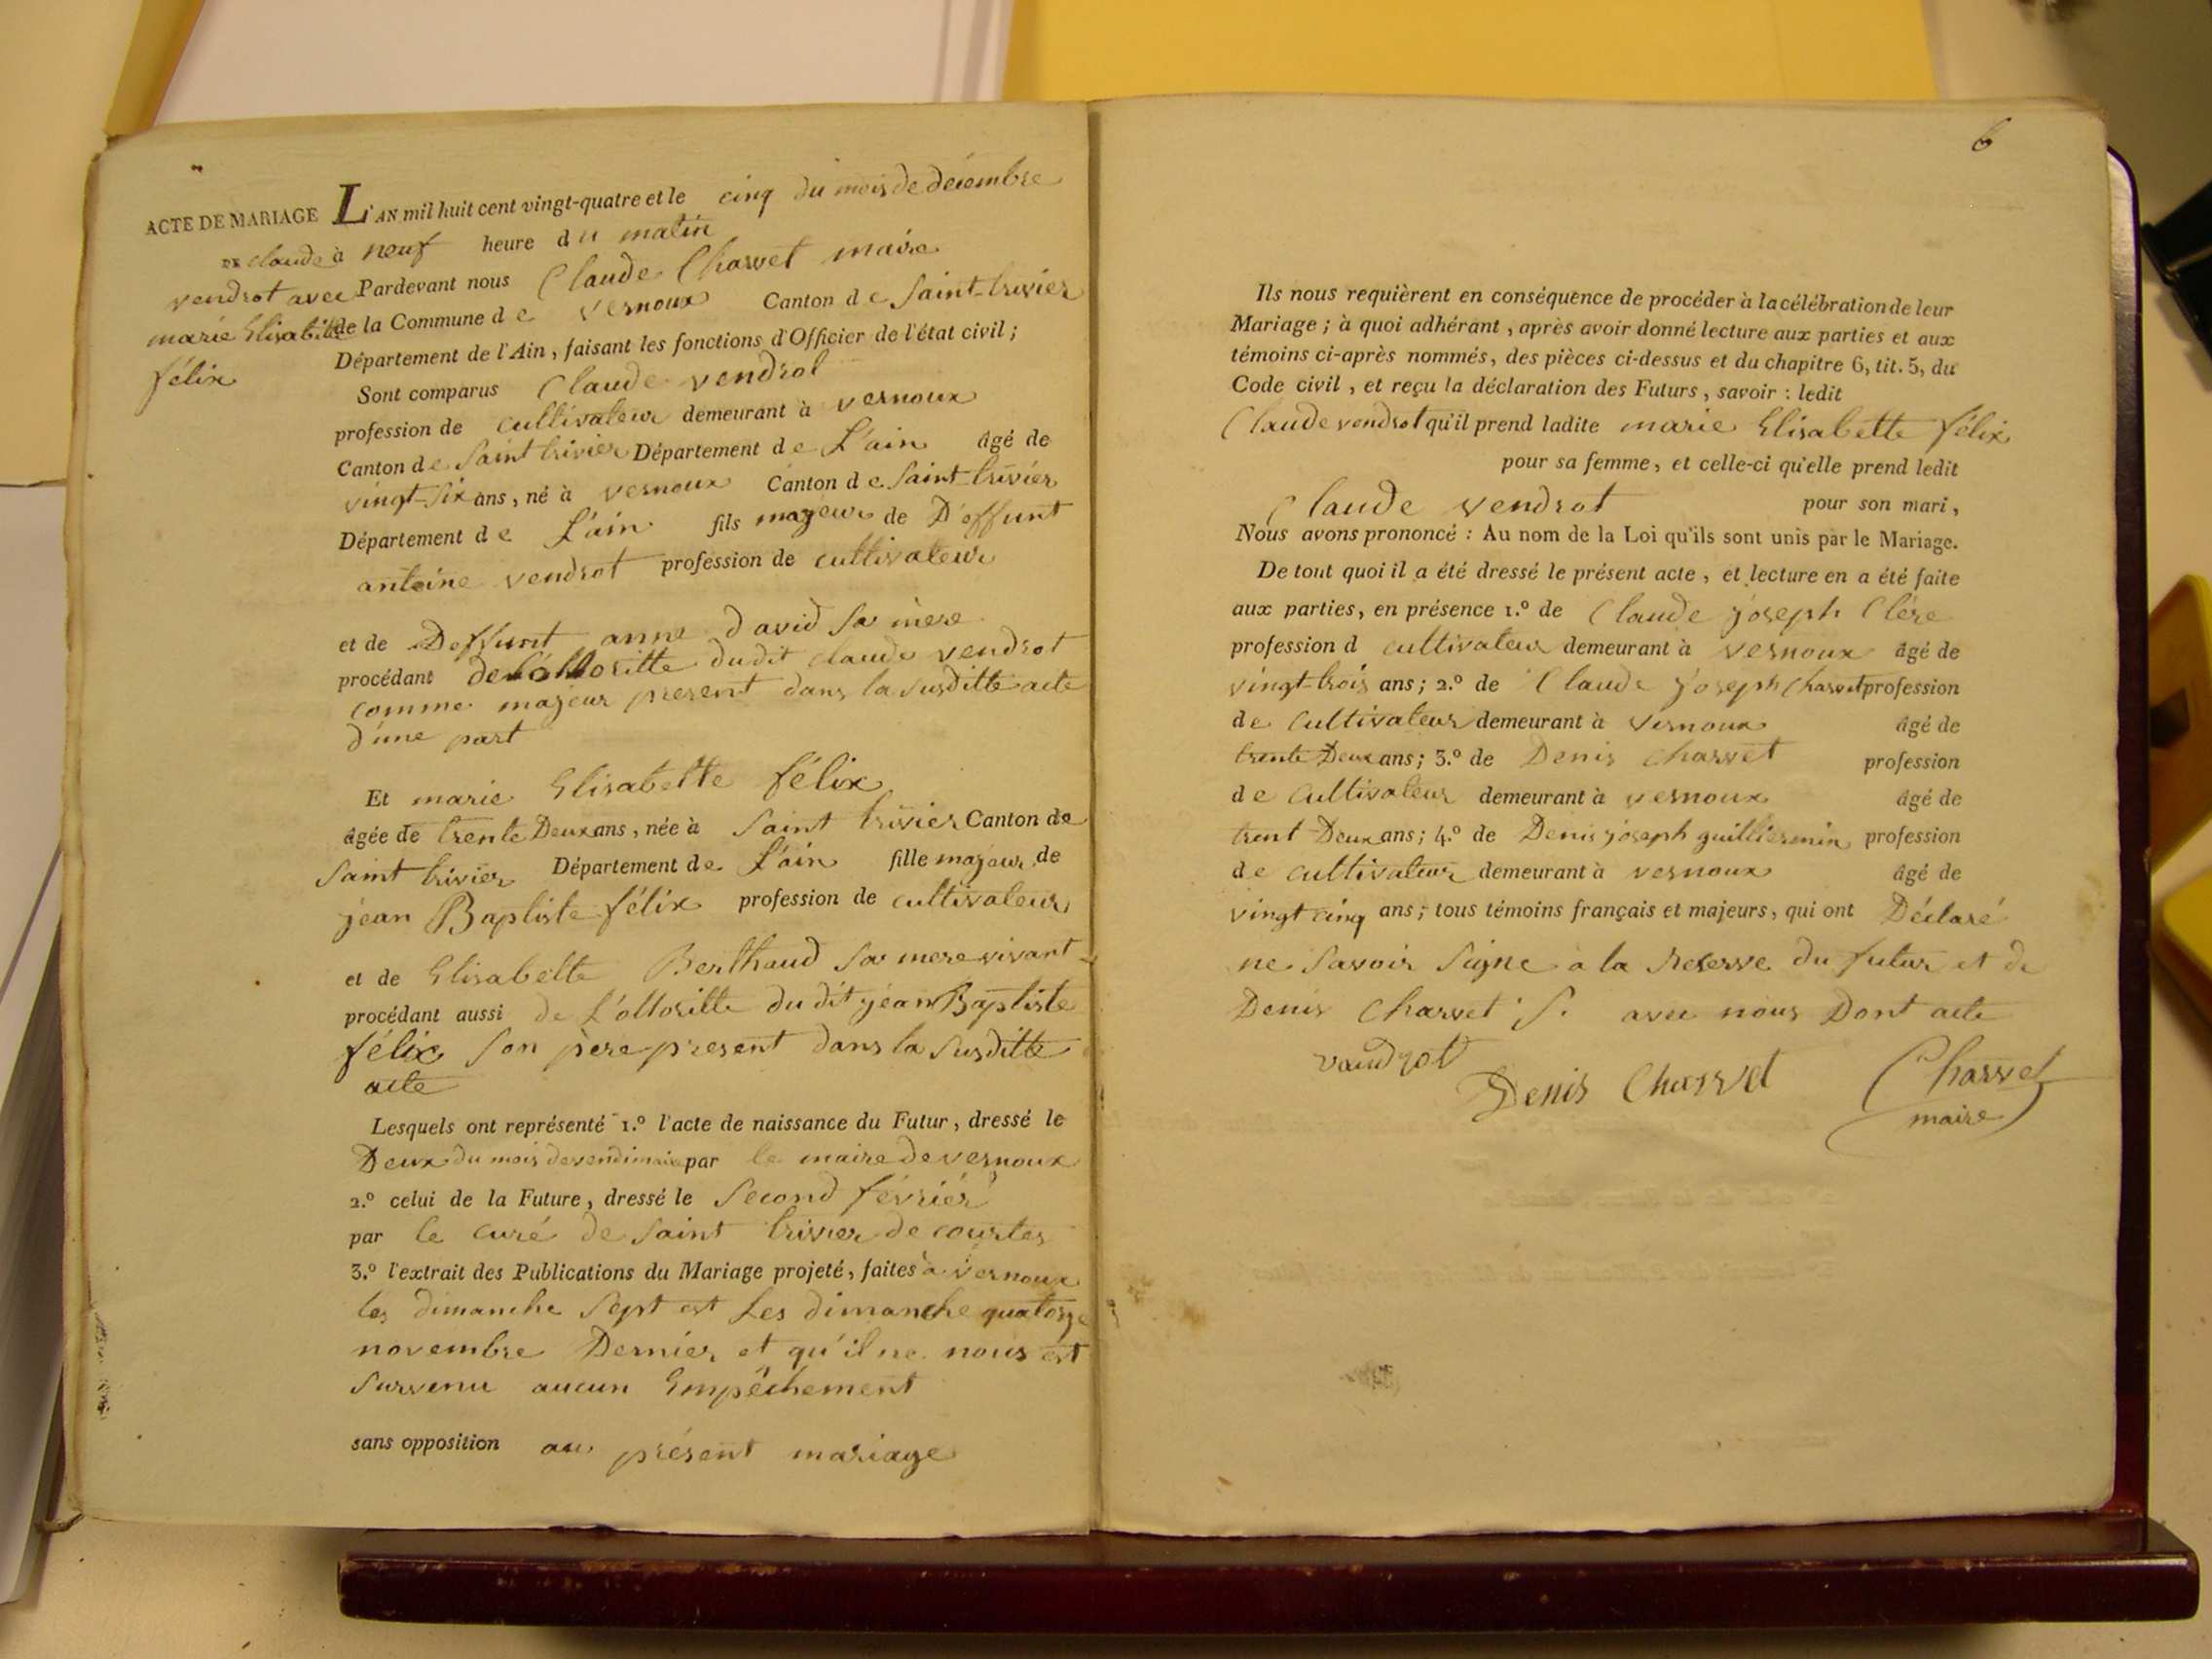 ACTE DE MARIAGE
DE claude
vendrot avec
marie Elisabette
félix
L'AN mil huit cent vingt-quatre et le cinq du mois de décembre
à neuf heure du matin
Pardevant nous Claude Charvet maire
de la Commune de vernoux Canton de Saint-trivier
Département de l'Ain, faisant les fonctions d'Officier de l'état civil ;
Sont comparus Claude vendrot
profession de cultivateur demeurant à vernoux
Canton de Saint trivier Département de L'ain âgé de
vingt-six ans, né à vernoux Canton de Saint-trivier
Département de L'ain fils majeur de Deffunt
antoine vendrot profession de cultivateur
et de Deffunt anne david sa mère
procédant de dudit claude vendrot
comme majeur present dans la susditte acte
d'une part
Et marie Elisabette félix
âgée de trente Deux ans, née à Saint trivier Canton de
Saint trivier Département de L'ain fille majeur de
jean Baptiste félix profession de cultivateur
et de Elisabette Berthaud sa mere vivant
procédant aussi de L'ottoritte du dit jean Baptiste
félix son père present dans la susditte
acte
Lesquels ont représenté 1.º l'acte de naissance du Futur, dressé le
Deux du mois de par le maire de vernoux
2.º celui de la Future, dressé le second février
par le curé de Saint trivier de courtes
3.º l'extrait des Publications du Mariage projeté, faites à vernoux
les dimanche sept est Les dimanche quatorze
novembre Dernier et qu'il ne nous est
survenu aucun Empêchement
sans opposition au présent mariage
6
Ils nous requièrent en conséquence de procéder à la célébration de leur
Mariage ; à quoi adhérant, après avoir donné lecture aux parties et aux
témoins ci-après nommés, des pièces ci-dessus et du chapitre 6, tit. 5, du
Code civil, et reçu la déclaration des Futurs, savoir : ledit
Claude vendrot qu'il prend ladite marie Elisabette félix
pour sa femme, et celle-ci qu'elle prend ledit
Claude vendrot pour son mari,
Nous avons prononcé : Au nom de la Loi qu'ils sont unis par le Mariage.
De tout quoi il a été dressé le présent acte, et lecture en a été faite
aux parties, en présence 1.º de Claude joseph Clére
profession d cultivateur demeurant à vernoux âgé de
vingt-trois ans ; 2.º de Claude joseph Charvet profession
de cultivateur demeurant à vernoux âgé de
trente Deux ans ; 3.º de Denis Charvet profession
de cultivateur demeurant à vernoux âgé de
trent Deux ans ; 4.º de Denis joseph guilliermin profession
de cultivateur demeurant à vernoux âgé de
vingt cinq ans ; tous témoins français et majeurs, qui ont Déclaré
ne savoir signe a la Reserve du futur et de
Denis Charvet S. avec nous Dont acte
vandrot
Denis Charvet
Charvet
maire